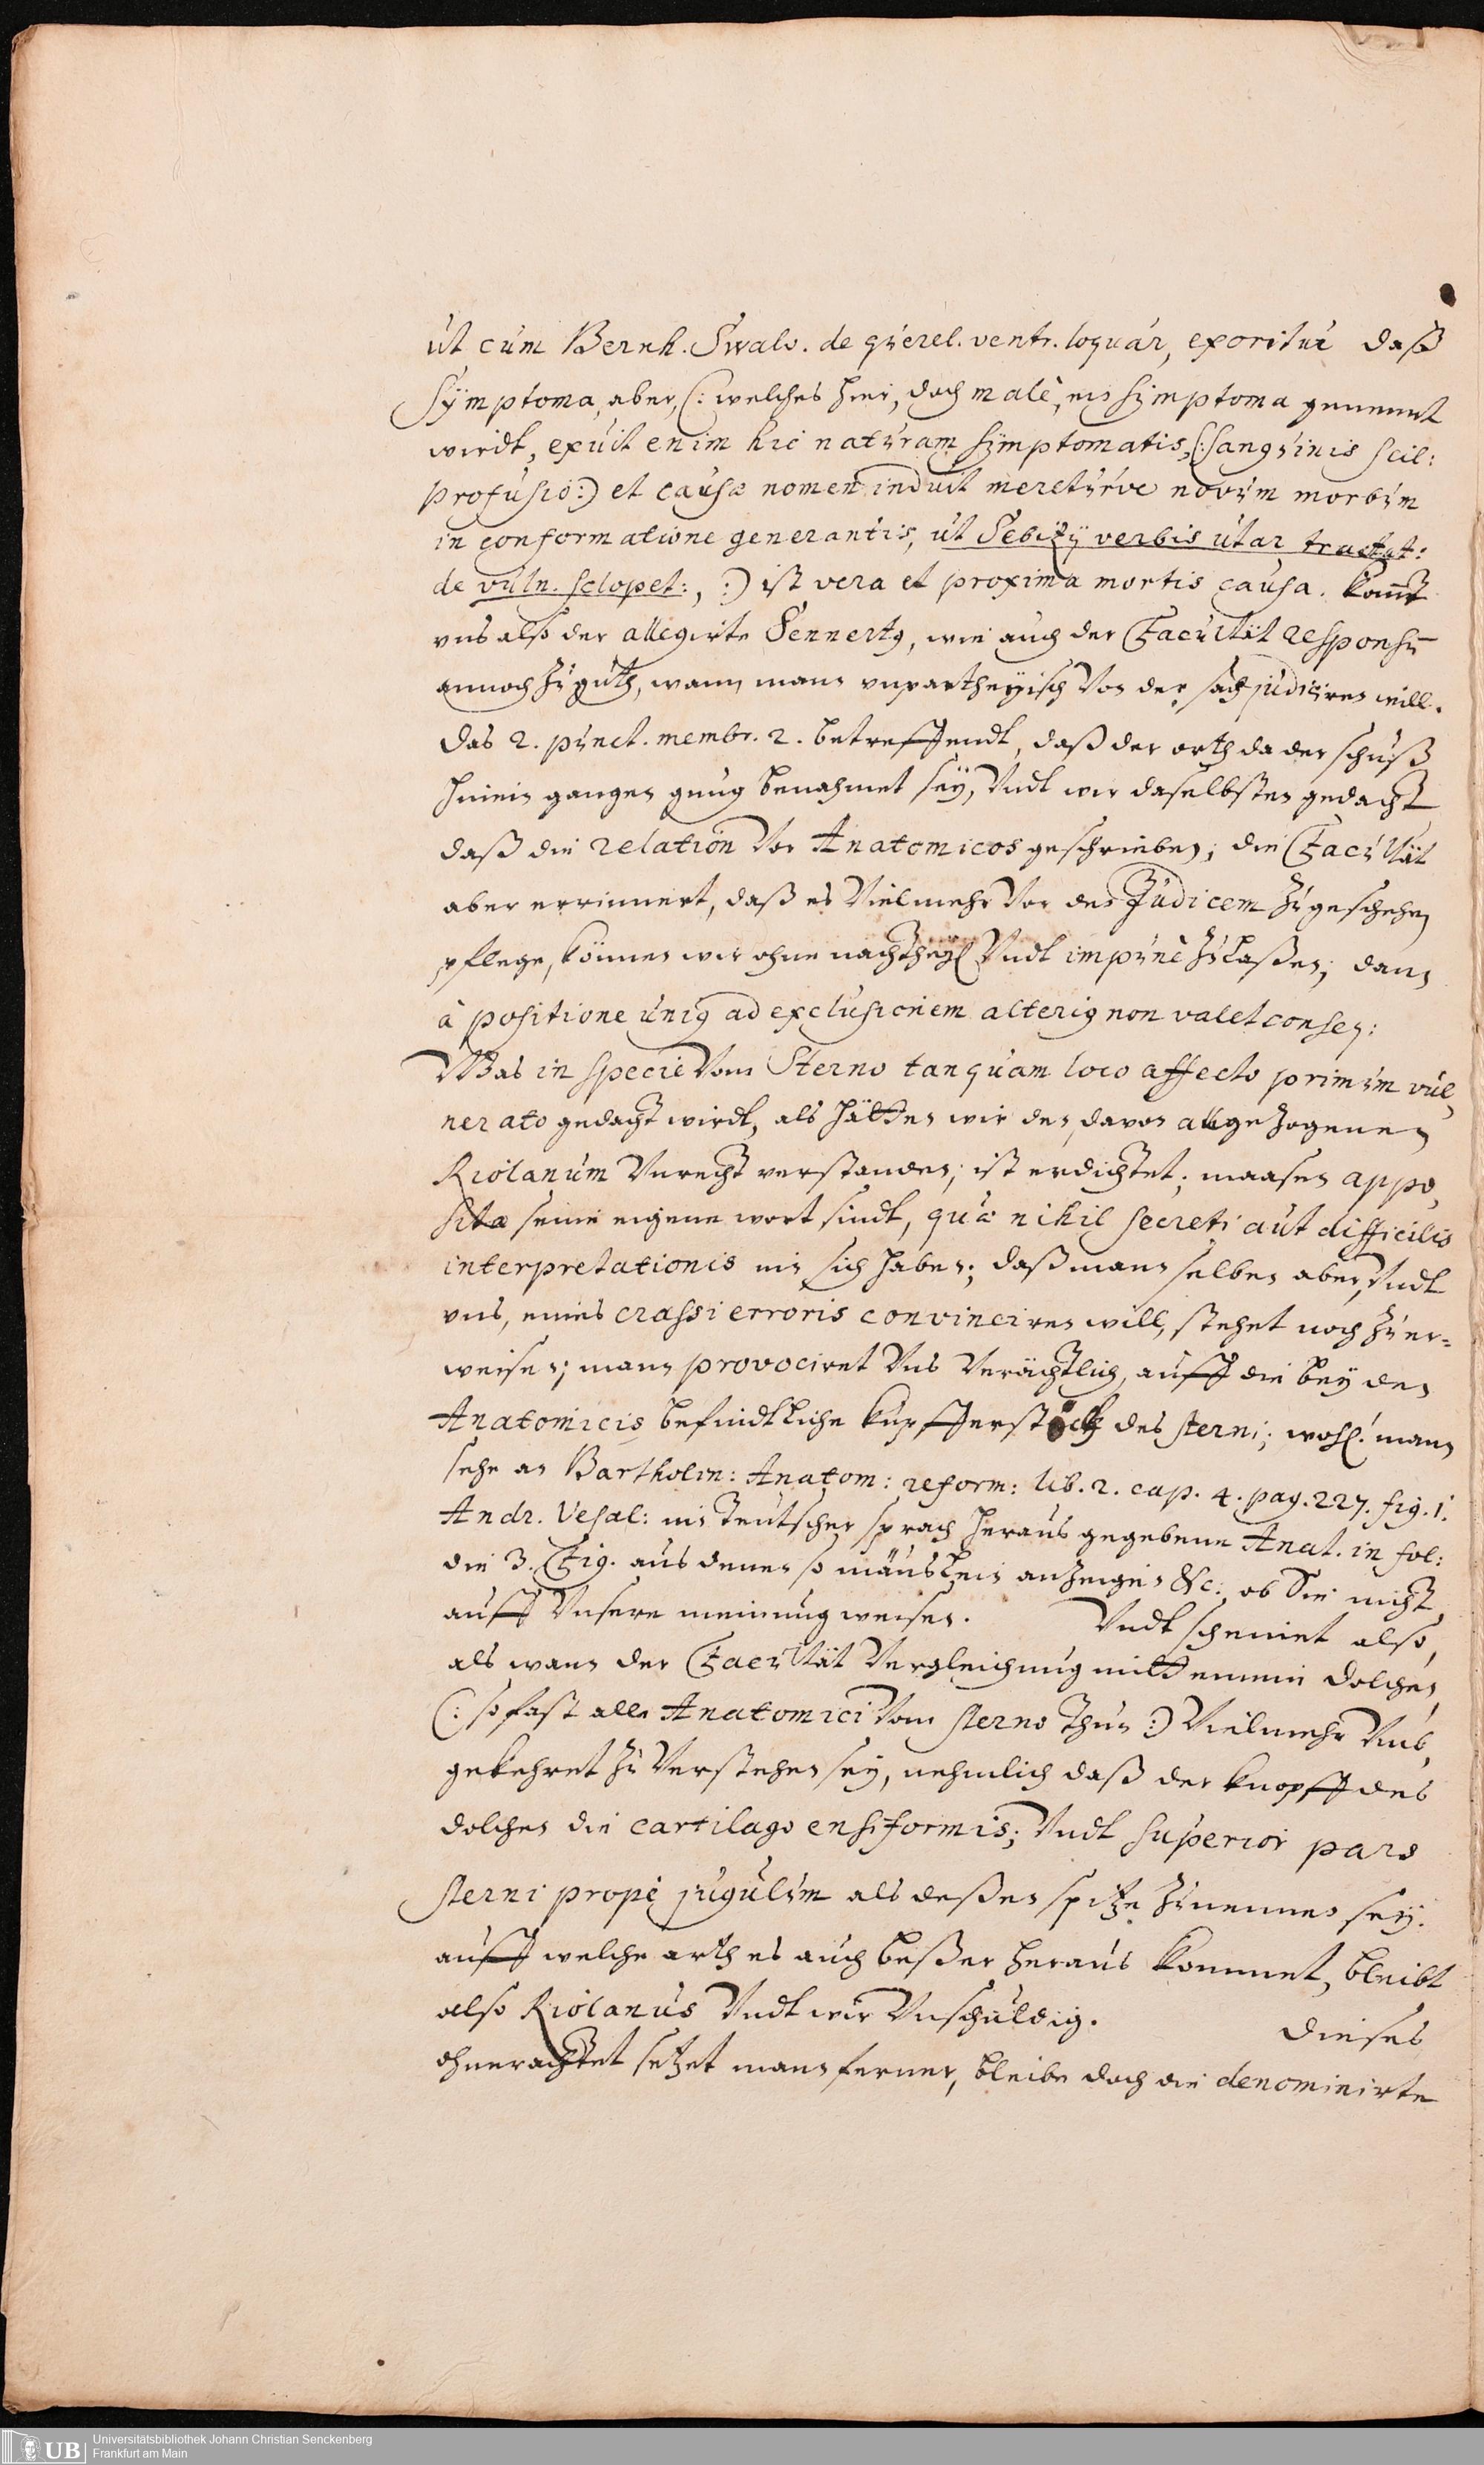 ut cum Bernh. Swalv. de querel. ventr. loquar, exoritur daß
Symptoma, aber, (: welches hier, doch malè, ein Symptoma genennt
wirdt, exuit enim hic naturam symptomatis, (: sanguinis scil:
profusio :) et causæ nomen induit meretúrve novum morbum
in conformatione generantis, ut Sebizÿ verbis utar tractat:
de vuln. sclopet: , :) ist vera et proxima mortis causa. kom̅t
uns also der allegirte Sennertg, wie auch der Facultät responsu̅
annoch zu guth, wann mann unpartheyisch von der sach judiciren will.
Das 2. punct. membr. 2. betreffendt, daß der orth da der schuß
hinein gangen gnug benahmet seÿ, Undt wir daselbsten gedacht
daß die relation vor Anatomicos geschrieben; die Facultät
aber errinnert, daß es vielmehr vor den Judicem zu geschehen
pflege, können wir ohne nachtheÿl Undt impunè zulaßen; dann
à positione unig ad exclusionem alterig non valet conseq:
Was in specie vom Sterno tanquam loco affecto primum vul,
nerato gedacht wirdt, als hätten wir den davon allegezogenen
Riolanum Unrecht verstanden; ist erdichtet; maasen appo,
sita seine eigene wort sindt, quæ nihil secreti aut difficilis
interpretationis in sich haben; daß mann selben aber, Undt
uns, eines crassi erroris convinciren will, stehet noch zu er-
weisen; mann provociret Uns Verächtlich, auff die beÿ den
Anatomicis befindtliche kupfferstöck des sterni; wohl! mann
sehe an Bartholin: Anatom: reform: lib. 2. cap. 4. pag. 227. fig. 1.
Andr. Vesal: in Teutscher sprach heraus gegebene Anat. in fol:
die 3. Fig. aus denen so mäuslein anzeigen &c: ob Sie nicht
auff Unsere meinung weisen. Undt scheinet also,
als wann der Facultät Vergleichung mitt einem Dolchen,
(: so fast alle Anatomici vom sterno thun :) Vielmehr Umb,
gekehret zu Verstehen seÿ, nehmlich daß der knopff des
dolchen die cartilago ensiformis; Undt superior pars
sterni propè jugulum als deßen spitze zu nennen seÿ.
auff welche arth es auch beßer heraus kommet, bleibt
also Riolanus Undt wir Unschuldig. Dieses
ohnerachtet setzet mann ferner, bleibe doch die denominirte
Universitätsbibliothek Johann Christian Senckenberg
Frankfurt am Main
UB